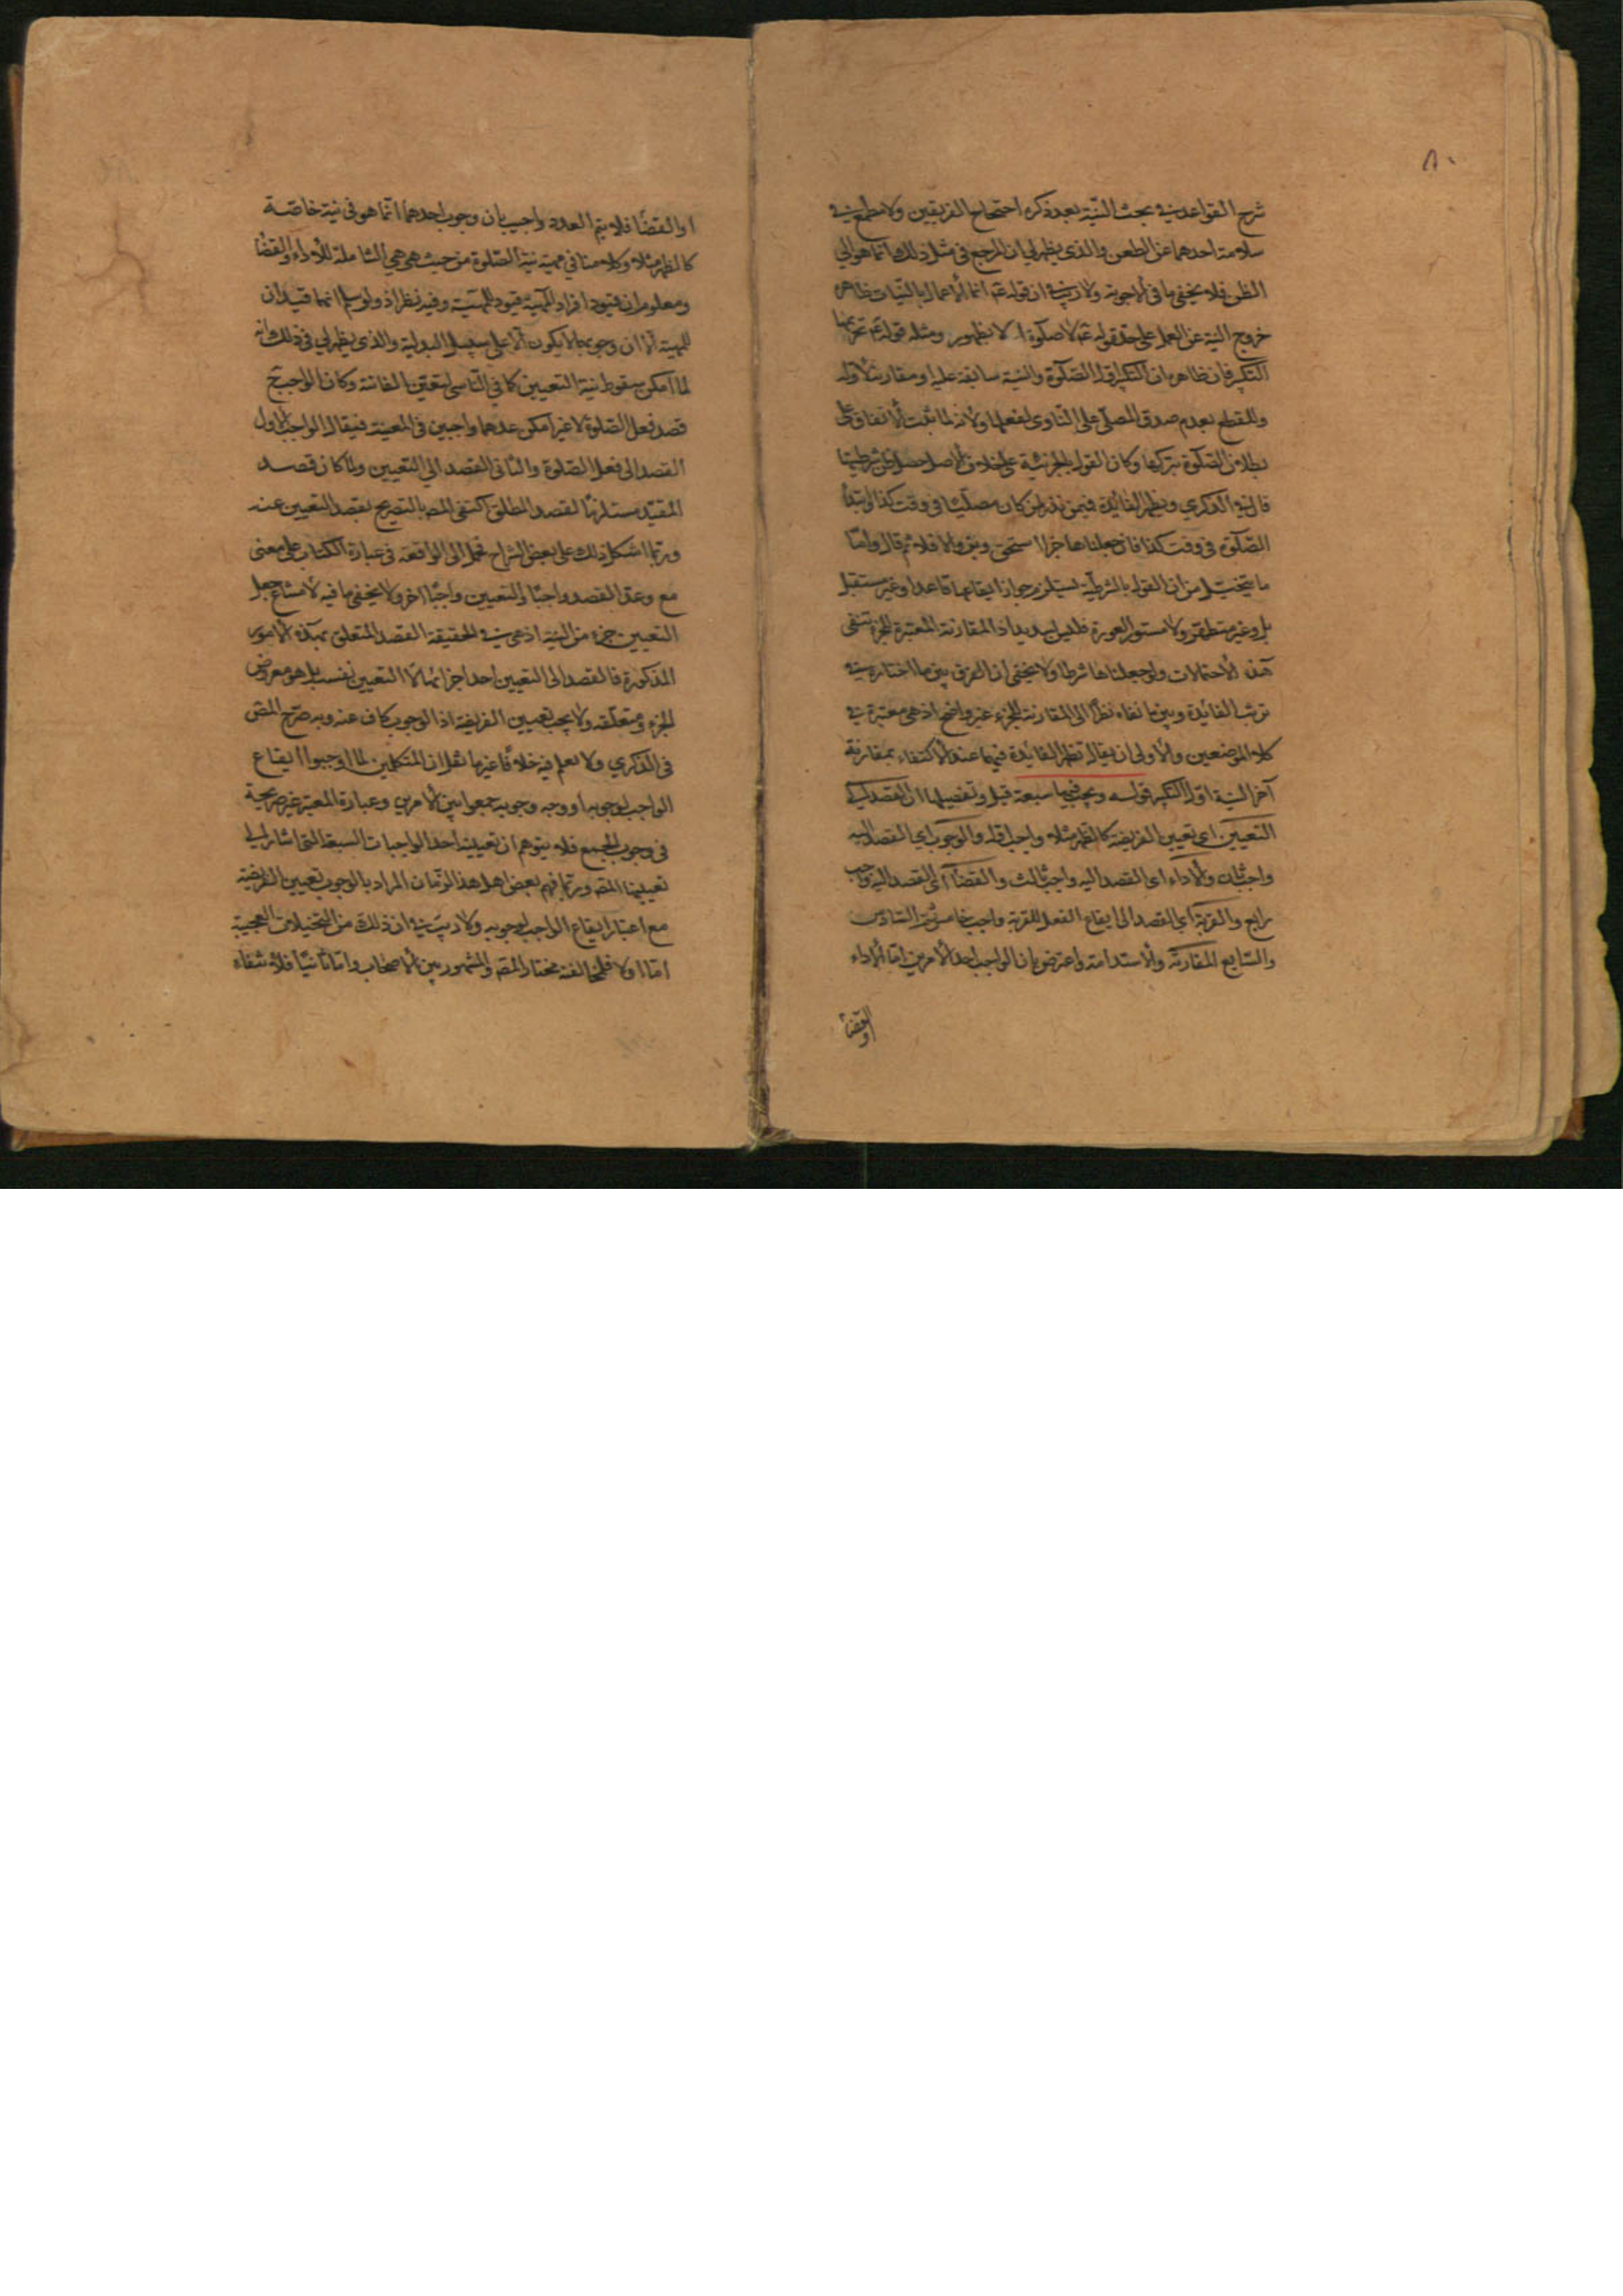 ٨٠
شرح القواعد في بحث النية بعد ذكره احتجاج الفريقين ولا مطمع في
سلامة احدهما عن الطعن والذي يظهر لي ان المرجع في مثل ذلك انما هو الى
الظن فلا يخفى ما في الاجوبة ولا ريب في ان قوله عم انما الاعمال بالنيات ظاهر
خروج النية عن العمل على حد قوله عم لا صلوة الا بطهور ومثله قوله عم تحريمها
التكبير فان ظاهره ان التكبير اول الصلوة والنية سابقة عليه او مقارنة لاوله
وللقطع بعدم صدق المصلى على الناوى لفعلها ولانه لما ثبت الاتفاق على
بطلان الصلوة بتركها وكان القول بالجزئية على خلاف الاصل شرطيتها
قال في الذكرى ويظهر الفائدة فيمن نذر لمن كان مصليا في وقت كذا او ابتدأ
الصلوة في وقت كذا فان جعلناها جزءا استحق وبر والا فلا ثم قال واما
ما يتخيل من ان القول بالشرطية يستلزم جواز ايقاعها قاعدا وغير مستقبل
بل وغير متطهر ولا مستور العورة فليس بسديد اذ المقارنة المعتبرة للجزء تنفى
هذه الاحتمالات ولو جعلناها شرطا ولا يخفى ان الفرق بين ما اختاره في
ترتب الفائدة وبين ما نفاه نظرا الى المقارنة للجزء غير واضح اذ هي معتبرة في
كلا الموضعين والاولى ان يقال تظهر الفايدة فيهما عند الاكتفاء بمقارنة
آخر النية اول التكبير قوله ويجب فيها سبعة قيل وتفصيلها ان القصد الى
التعيين اى تعيين الفريضة كالظهر مثلا واجب اول والوجوب اي القصد اليه
واجب ثان والاداء اى القصد اليه واجب ثالث والقضاء اى القصد اليه واجب
رابع والقربة اي القصد الى ايقاع الفعل للقربة واجب خامس السادس
والسابع المقارنة والاستدامة واعترض بان الواجب احد الامرين اما الاداء
او القضاء
او القضا فلا يتم العدد واجيب بان وجوب احدهما انما هو في نية خاصة
كالظهر مثلا وكلامنا في مهية نية الصلوة من حيث هي هي الشاملة للاداء والقضا
ومعلوم ان قيود افراد المهية قيود للمهية وفيه نظر اذ ولو سلم انهما قيدان
للمهية الا ان وجوبهما لا يكون الا على سبيل البدلية والذى يظهر لي في ذلك انه
لما امكن سقوط نية التعيين كما في الناسي لتعين الفائتة وكان الواجب ح
قصد فعل الصلوة لا غير امكن عدهما واجبين في المعينة فيقال الواجب الاول
القصد الى فعل الصلوة والثانى القصد الى التعيين ولما كان قصد
المقيد مستلزما لقصد المطلق اكتفى المص بالتصريح بقصد التعيين عنه
وربما اشكل ذلك على بعض الشراح فحمل الى الواقعة في عبارة الكتاب على معنى
مع وعد القصد واجبا والتعيين واجبا اخر ولا يخفى ما فيه لامتناع جعل
التعيين جزء من النية اذ هي في الحقيقة القصد المتعلق بهذه الامور
المذكورة فالقصد الى التعيين احد اجزائها لا التعيين نفسه بل هو معروض
الجزء ومتعلقه ولا يجب تعيين الفريضة اذ الوجوب كاف عنه وبه صرح المص
في الذكرى ولا نعلم فيه خلافا غير ما نقل ان المتكلمين لما اوجبوا ايقاع
الواجب لوجوبه او وجه وجوبه جمعوا بين الامرين وعبارة المعتبر غير صريحة
في وجوب الجمع فلا يتوهم ان تعيينه احد الواجبات السبعة التي اشار الى
تعيينها المص وربما فهم بعض اهل هذا الزمان المراد بالوجوب تعيين الفريضة
مع اعتبار ايقاع الواجب لوجوبه ولا ريب في ان ذلك من التخيلات العجيبة
اما اولا فلمخالفته مختار المص والمشهور بين الاصحاب واما ثانيا فلانتفاء